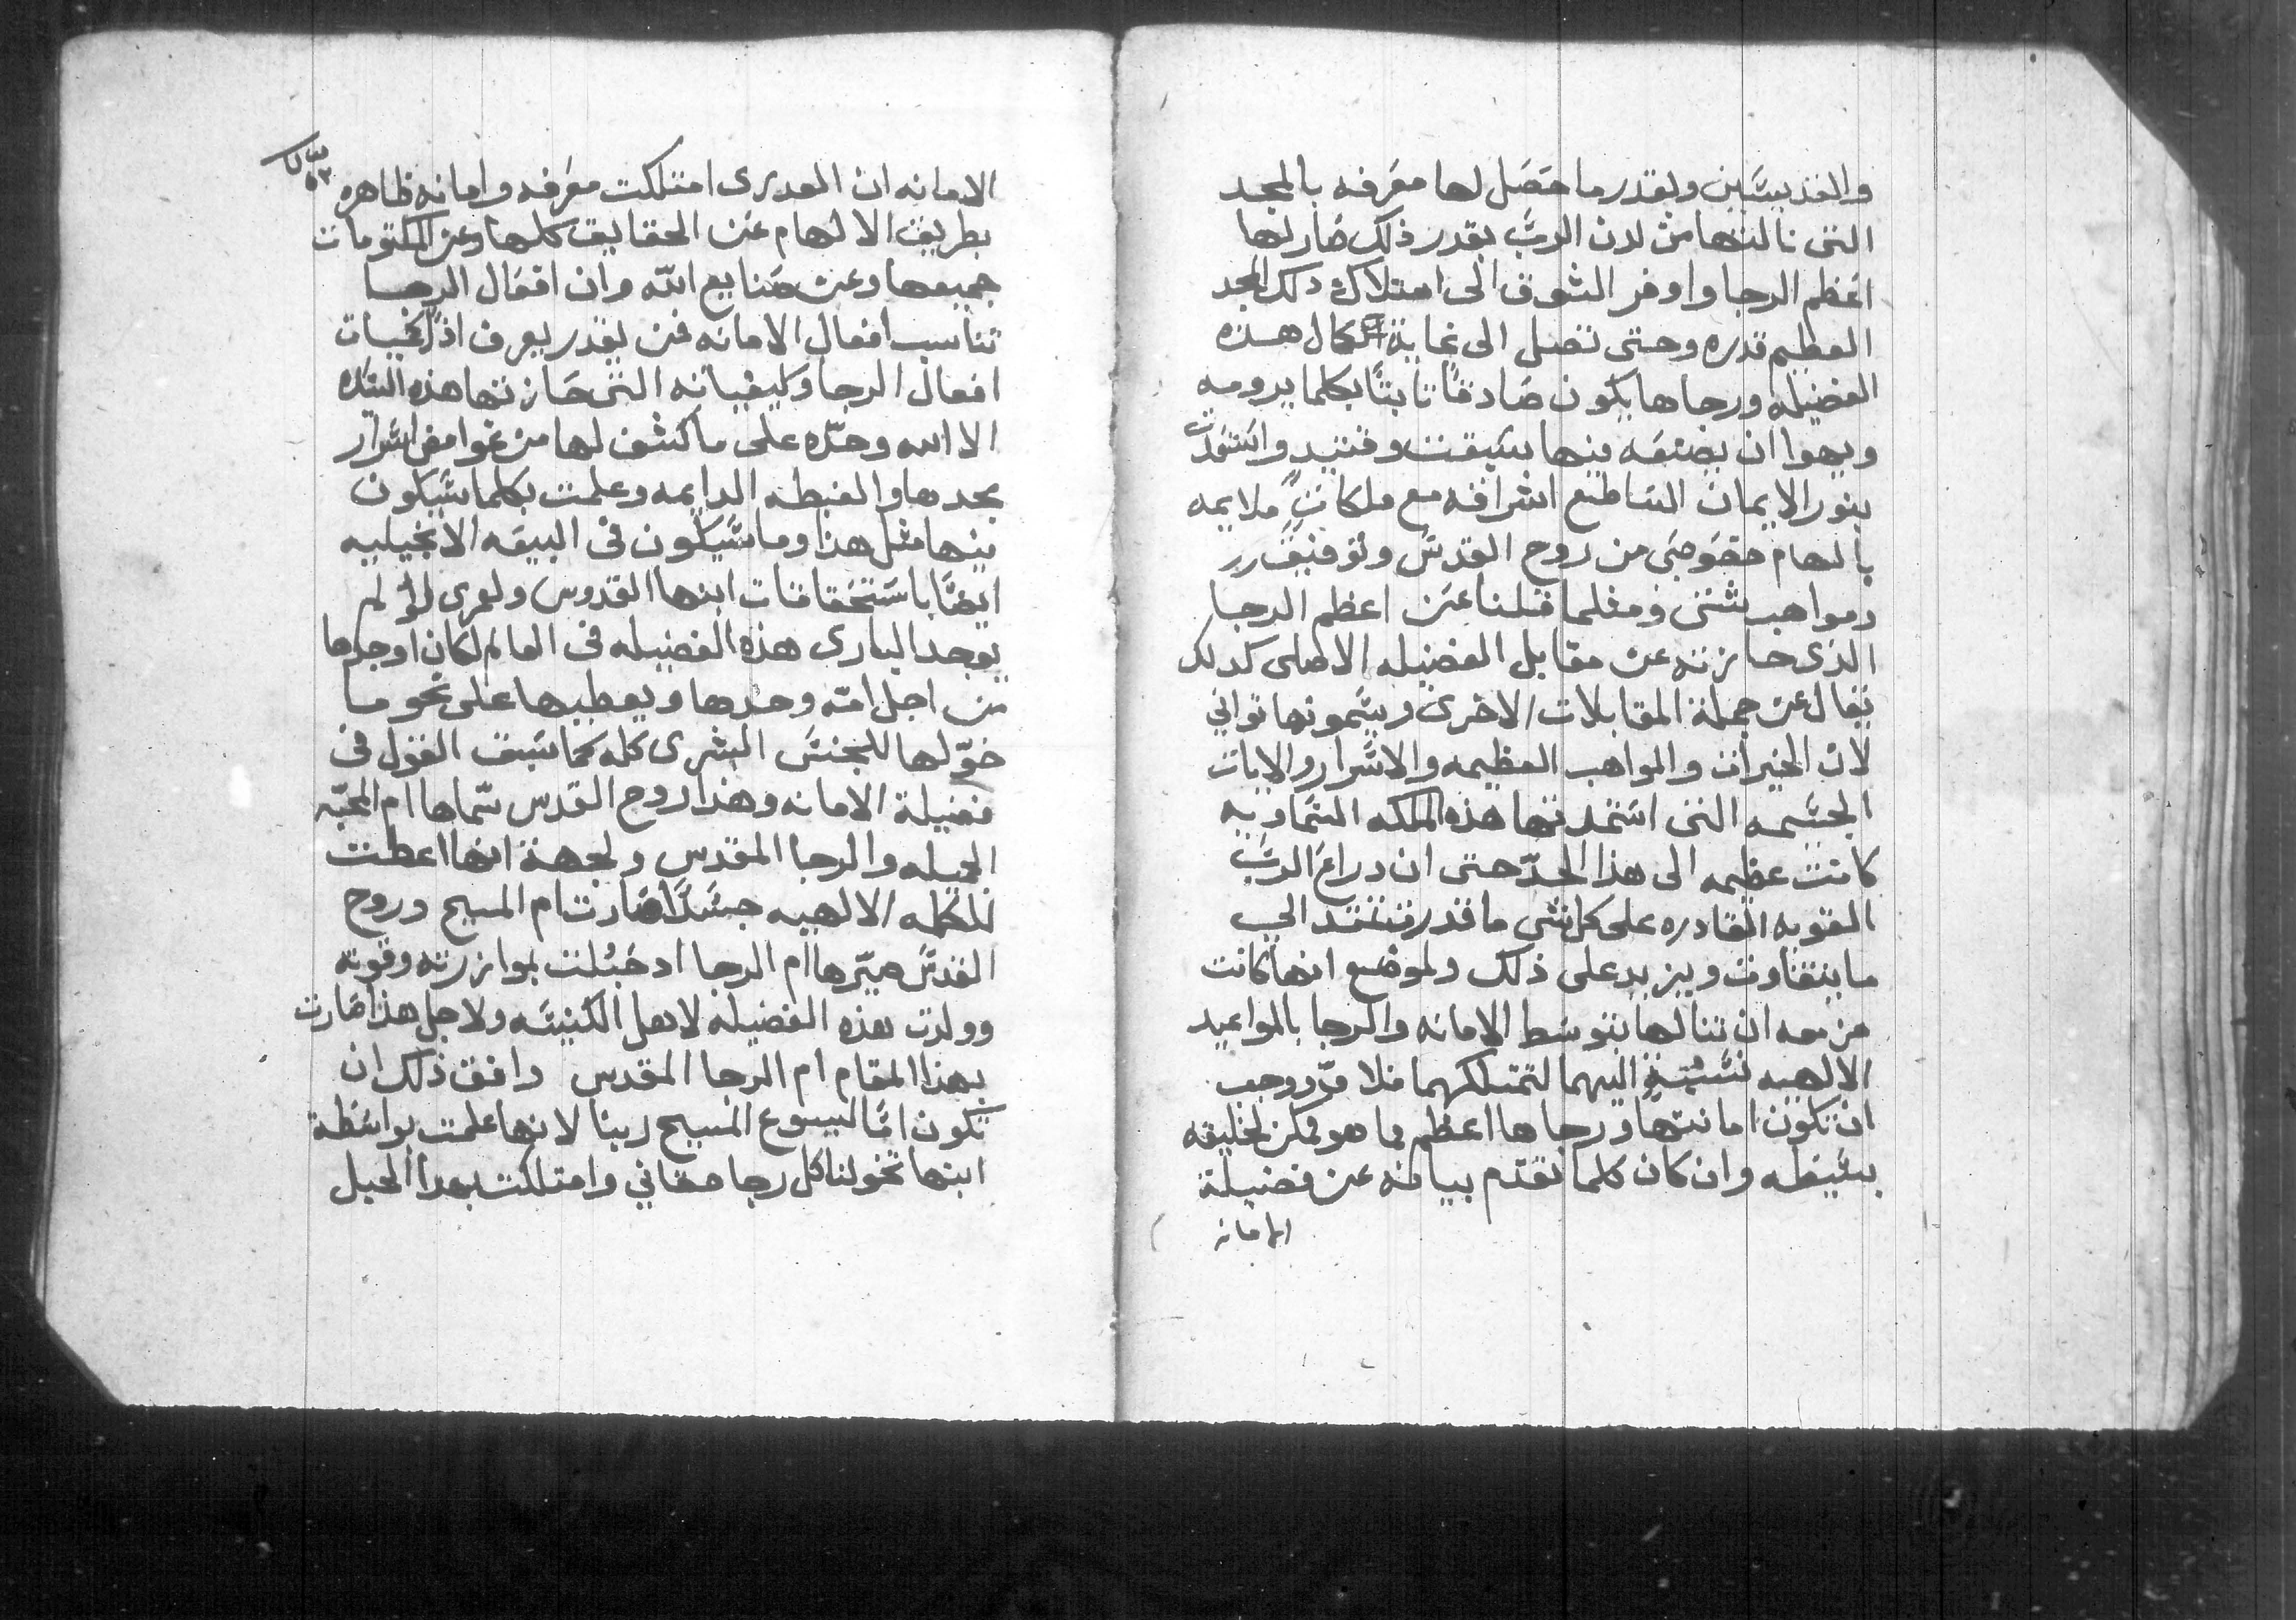 والقديسين وبقدر ما حصل لها معرفه بالمجد
التى نالتها من لدن الرب بقدر ذلك صار لها
اعظم الرجا واوفر الشوق الى امتلاك دلك المجد
العظيم قدره وحتى تصل الى غاية كمال هذه
الفضيله ورجاها يكون صادقًا ثابتًا بكلما يرومه
ويهوا ان يصنعه فيها سبقت واستمدت
بنور الايمان الساطع اشراقه مع ملكات ملايمه
بالهام خصوصى من روح القدس وتوفيق
ومواهب شتى ومثلما قلنا عن اعظم الرجا
الذى حازته عن مقابل الفضيله الاصلى كدلك
نقال عن جملة المقابلات الاخرى ويسمونها ثوانى
لان الخيرات والمواهب العظيمه والاسرار والايات
الجسيمه التى استمدتها هذه الملكه السماويه
كانت عظيمه الى هذا الحدّ حتى ان دراع الرب
القويه القادره على كل شى ما قدرت تمتد الى
ما يتفاوت ويزيد على ذلك ولموضع انها كانت
مزمعه ان تنالها بتوسط الامانه والرجا بالمواعيد
الالهيه نسبةٍ اليهما لتمتلكهما فلا مردّ وجب
ان تكون امانتها ورجاها اعظم مما هو ممكن لخليقه
بسيطه وان كان كلما تقدّم بيانه عن فضيلة
الامانه
الامانه ان العدرى امتلكت معرفه وامانه ظاهره
بطريق الالهام عن الحقايق كلها وعن المكتومات
جميعها وعن صنايع الله وان افعال الرجا
تناسب افعال الامانه فمن يقدر يعرف اذًا كميات
افعال الرجا وكيفياته التى حازتها هذه السيّده
الا الله وحدّه على ما كشف لها من غوامض اسرار
مجدها والغبطه الدايمه وعلمت بكلما سيكون
فيها مثل هذا وما سيكون فى البيعه الانجيليه
ايضًا باستحقاقات ابنها القدوس ولعمرى لو لم
يوجد البارى هذه الفضيله فى العالم لكان اوجدها
من اجل امّه وحدها ويعطيها على نحو ما
خوّلها للجنس البشرى كله كما سبق القول فى
فضيلة الامانه وهذا روح القدس سمّاها ام المحبّه
الجميله والرجا المقدس ولجهة انها اعطت
للكلمه الالهيه جسدًا صارت ام المسيح وروح
القدس صيّرها ام الرجا اد حبلت بموازرته وقوته
وولدت هذه الفضيله لاهل الكنيسه ولاجل هذا صارت
بهذا المقام ام الرجا المقدس وافق ذلك ان
تكون امًا ليسوع المسيح ربنا لانها علمت بواسطة
ابنها تخولنا كل رجا حقانى وامتلكت بهدا الحبل